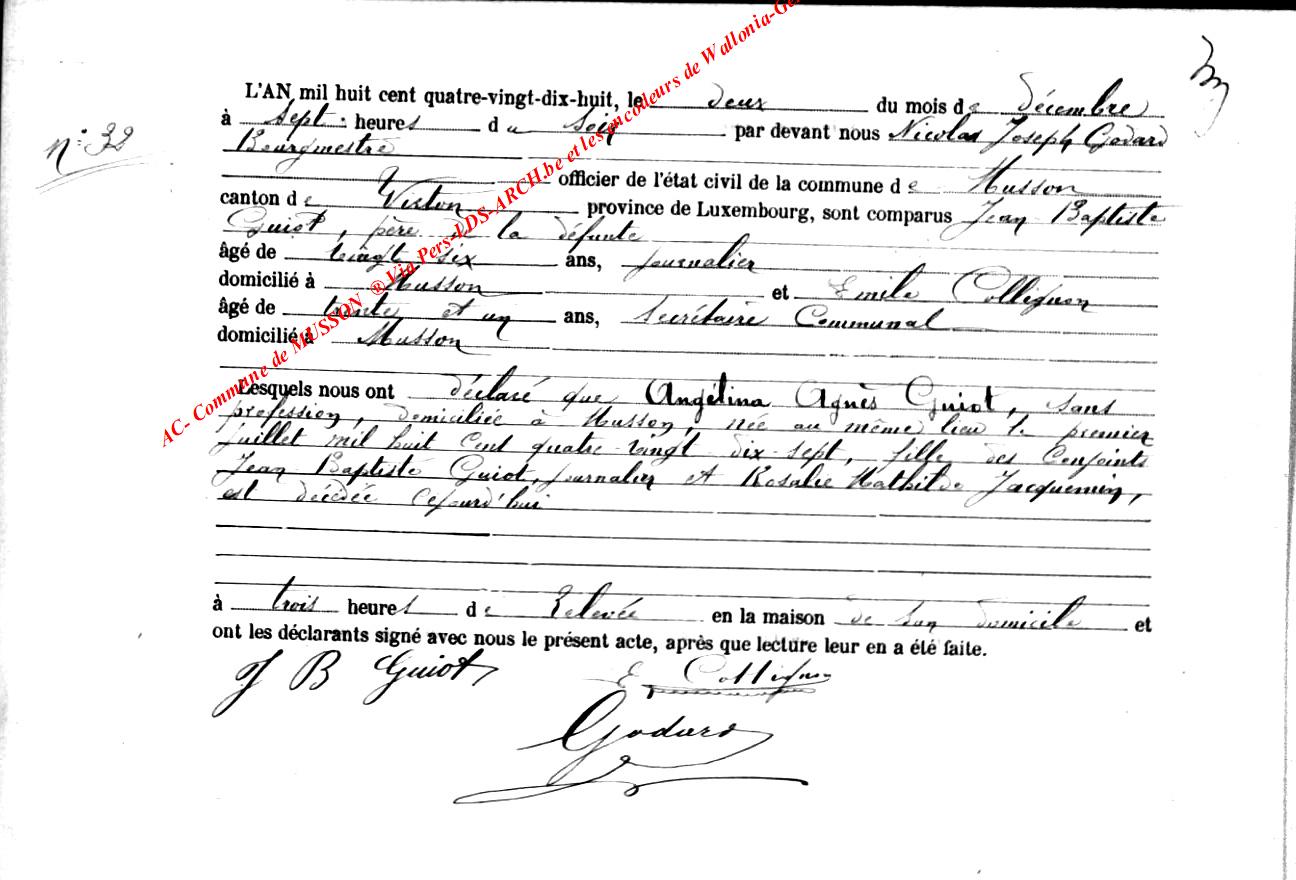 L'AN mil huit cent quatre-vingt-dix-huit, le deux du mois de décembre
n° 32
à sept heures du soir par devant nous Nicolas Joseph Godard
Bourgmestre
officier de l'état civil de la commune de Musson
canton de Virton province de Luxembourg, sont comparus Jean Baptiste
Guiot, père de la défunte
âgé de vingt six ans, journalier
domicilié à Musson et Emile Collignon
âgé de trente et un ans, Secrétaire Communal
domicilié à Musson
Lesquels nous ont déclaré que Angélina Agnès Guiot, sans
profession, domiciliée à Musson, née au même lieu le premier
juillet mil huit cent quatre-vingt dix-sept, fille des Conjoints
Jean Baptiste Guiot, journalier et Rosalie Mathilde Jacquemin,
est décédée cejourd'hui
à trois heures de Relevée en la maison de son domicile et
ont les déclarants signé avec nous le présent acte, après que lecture leur en a été faite.
J B Guiot E Collignon
Godard
AC- Commune de MUSSON ® Via Pers-LDS-ARCH.be et les encodeurs de Wallonia-Ge